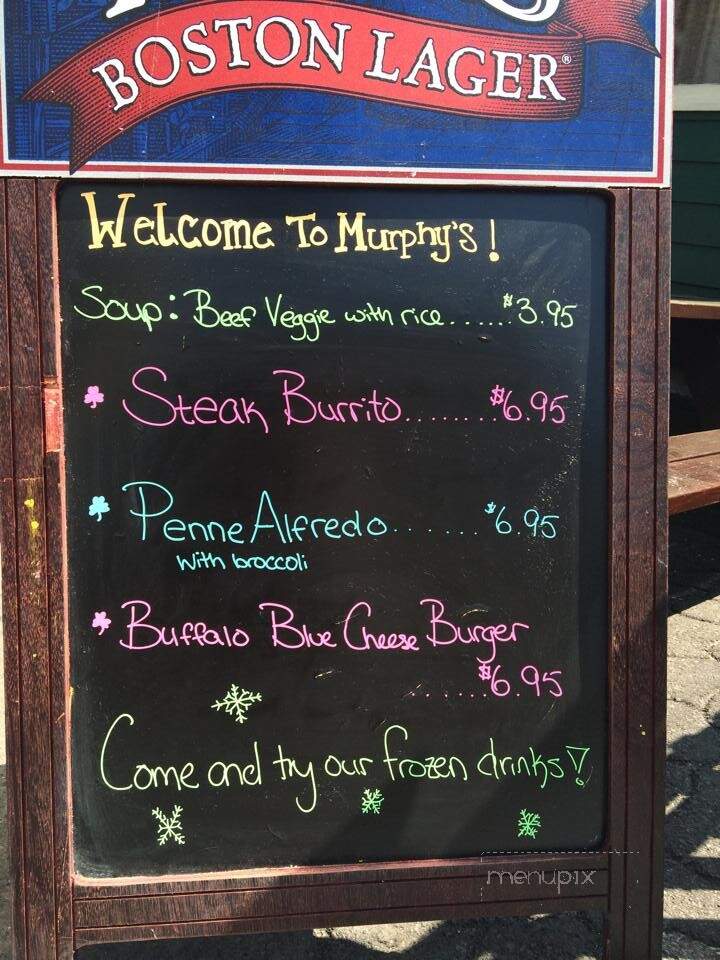 BOSTON LAGER®
Welcome To Murphy's!
Soup: Beef Veggie with rice......$3.95
Steak Burrito........$6.95
Penne Alfredo.......$6.95
with broccoli
Buffalo Blue Cheese Burger
......$6.95
Come and try our frozen drinks!
menupix